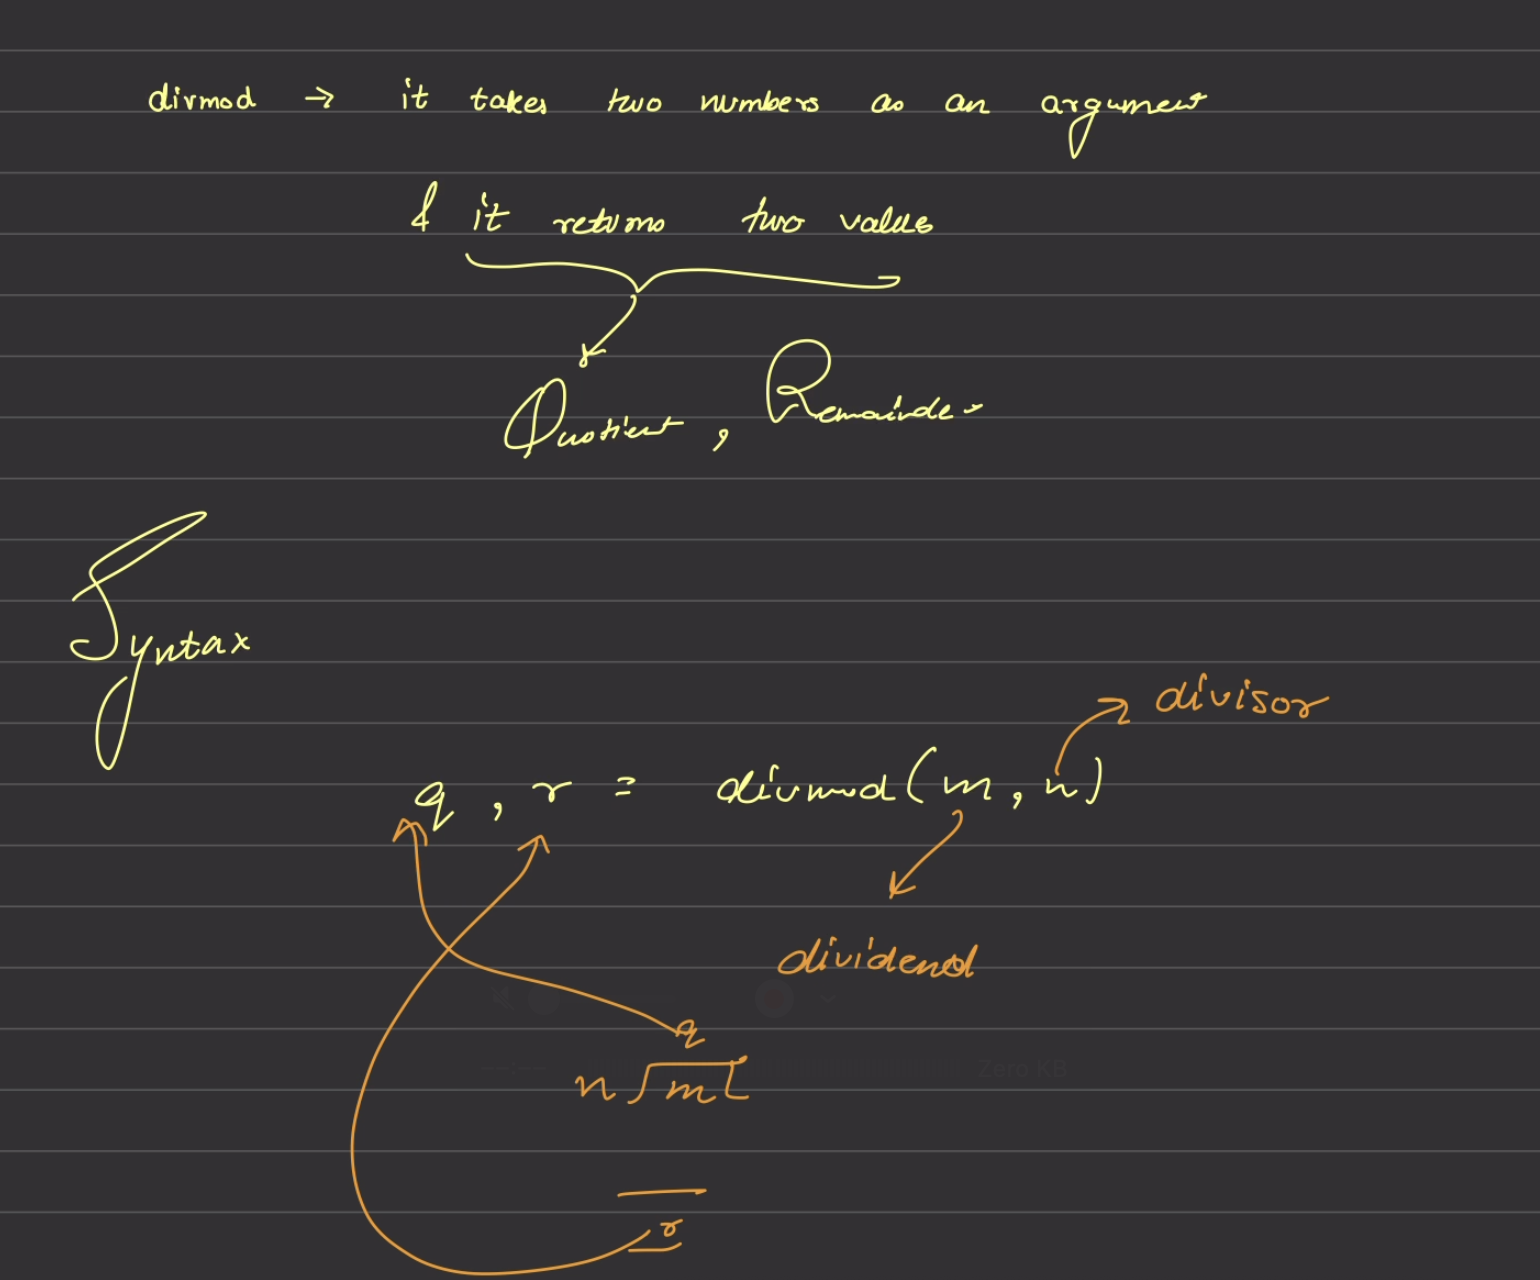 divmod → it takes two numbers as an argument
& it returns two values
Quotient, Remainder
Syntax
divisor
q, r = divmod(m, n)
dividend
q
n √ m
r
Zero KB